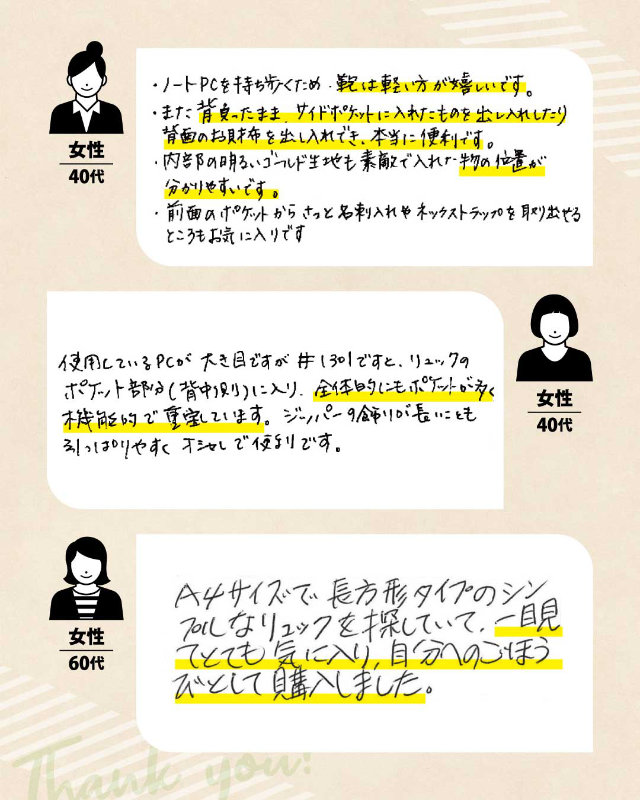 ・ノートPCを持ち歩くため、鞄は軽い方が嬉しいです。
・また背負ったまま、サイドポケットに入れたものを出し入れしたり
背面のお財布を出し入れでき、本当に便利です。
・内部の明るいゴールド生地も素敵で入れた物の位置が
分かりやすいです。
・前面のポケットからさっと名刺入れやネックストラップを取り出せる
ところもお気に入りです
女性
40代
使用しているPCが大き目ですが#1301ですと、リュックの
ポケット部分(背中側)に入り、全体的にもポケットが多く
機能的で重宝しています。ジッパーの飾りが長いことも
引っぱりやすくオシャレで便利です。
女性
40代
A4サイズで長方形タイプのシン
プルなリュックを探していて、一目見
てとても気に入り、自分へのごほう
びとして購入しました。
女性
60代
Thank you!